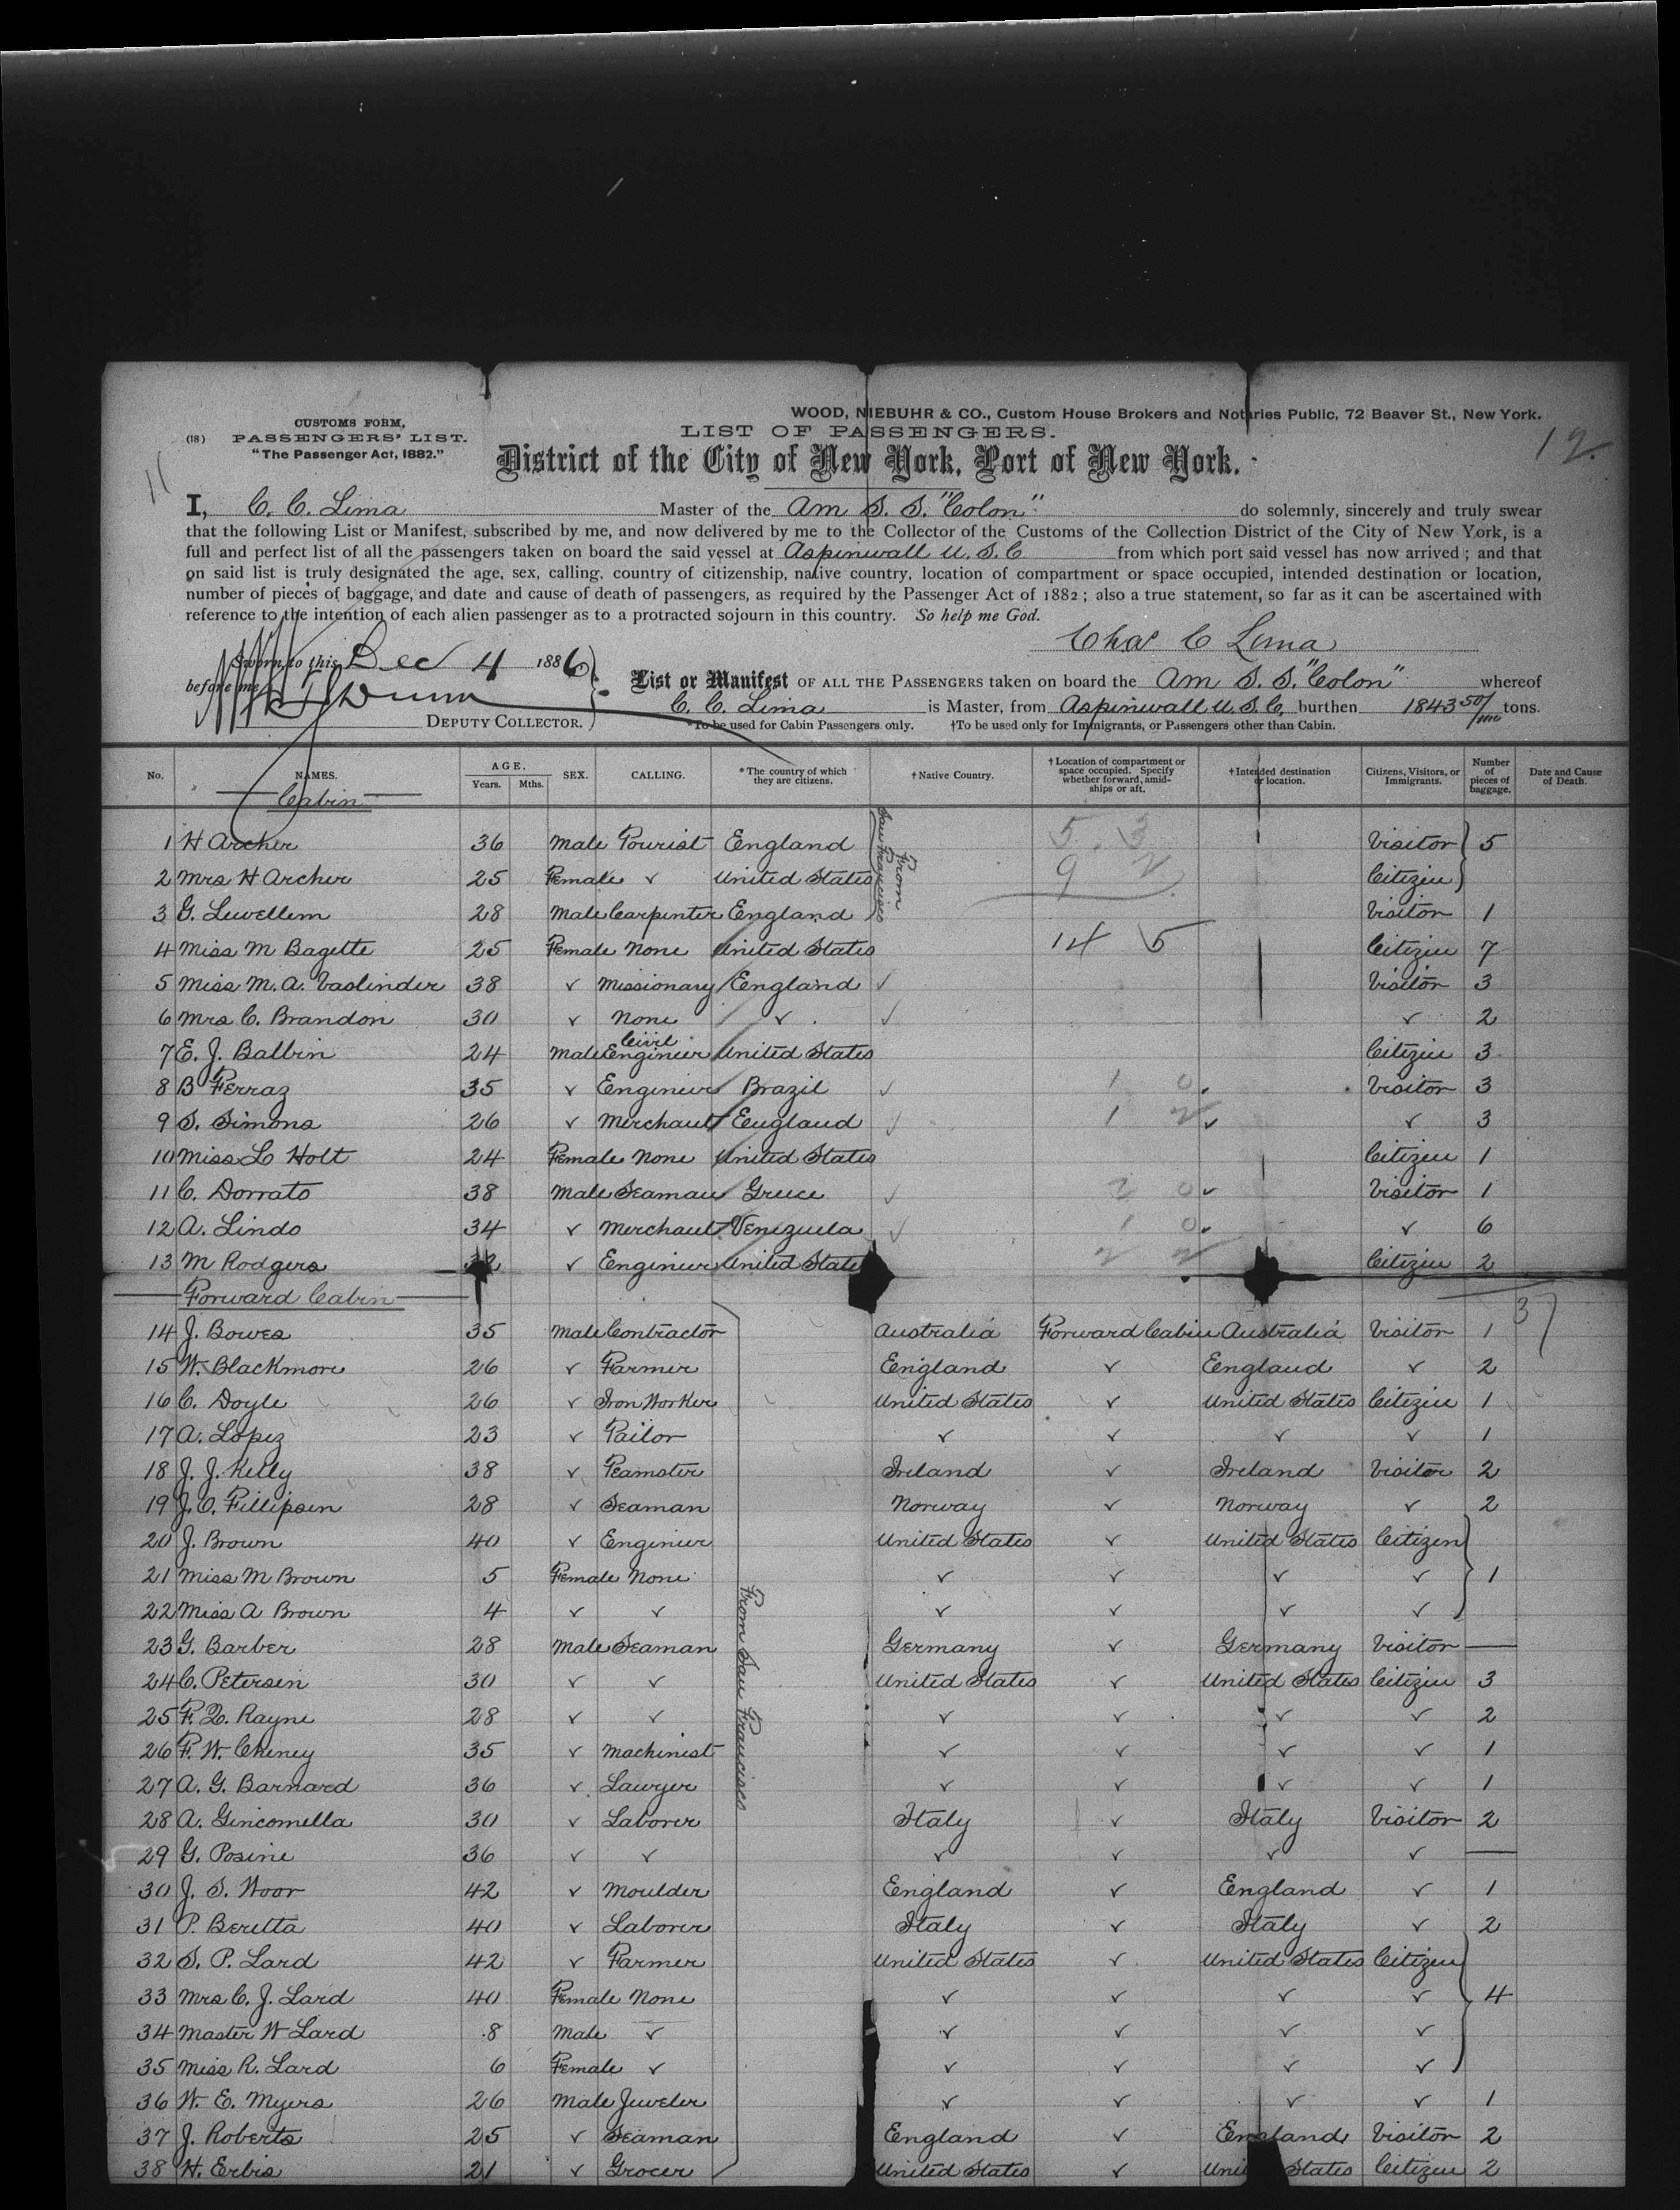 WOOD, NIEBUHR & CO., Custom House Brokers and Notaries Public, 72 Beaver St., New York.
CUSTOMS FORM,
(18) PASSENGERS' LIST.
"The Passenger Act, 1882."
LIST OF PASSENGERS.
District of the City of New York, Port of New York.
11
12.
I, C. C. Lima Master of the Am S. S. "Colon" do solemnly, sincerely and truly swear
that the following List or Manifest, subscribed by me, and now delivered by me to the Collector of the Customs of the Collection District of the City of New York, is a
full and perfect list of all the passengers taken on board the said vessel at Aspinwall U. S. C from which port said vessel has now arrived; and that
on said list is truly designated the age, sex, calling, country of citizenship, native country, location of compartment or space occupied, intended destination or location,
number of pieces of baggage, and date and cause of death of passengers, as required by the Passenger Act of 1882; also a true statement, so far as it can be ascertained with
reference to the intention of each alien passenger as to a protracted sojourn in this country. So help me God.
Chas C Lima
Sworn to this Dec 4 1886
before me
Dunn
DEPUTY COLLECTOR.
List or Manifest OF ALL THE PASSENGERS taken on board the Am S. S. "Colon" whereof
C. C. Lima is Master, from Aspinwall U. S. C, burthen 1843 50/100 tons.
*To be used for Cabin Passengers only. †To be used only for Immigrants, or Passengers other than Cabin.
No. NAMES. AGE. Years. Mths. SEX. CALLING. *The country of which they are citizens. †Native Country. †Location of compartment or space occupied. Specify whether forward, amidships or aft. †Intended destination or location. Citizens, Visitors, or Immigrants. Number of pieces of baggage. Date and Cause of Death.
Cabin
From San Francisco
1 H Archer 36 Male Tourist England 5 3 Visitor 5
2 Mrs H Archer 25 Female ✓ United States 9 2 Citizen
3 G. Lewellem 28 Male Carpenter England Visitor 1
4 Miss M Bagette 25 Female None United States 14 5 Citizen 7
5 Miss M. A. Vaslinder 38 ✓ Missionary England ✓ Visitor 3
6 Mrs C. Brandon 30 ✓ None ✓ ✓ ✓ 2
7 E. J. Balbin 24 Male Civil Engineer United States Citizen 3
8 B Ferraz 35 ✓ Engineer Brazil ✓ 1 0 Visitor 3
9 S. Simons 26 ✓ Merchant England ✓ 1 2 ✓ ✓ 3
10 Miss L Holt 24 Female None United States Citizen 1
11 C. Dorrato 38 Male Seaman Greece ✓ 2 0 ✓ Visitor 1
12 A. Lindo 34 ✓ Merchant Venezuela ✓ 1 0 ✓ 6
13 M Rodgers ✓ Engineer United States 2 2 Citizen 2
Forward Cabin
37
14 J. Bowes 35 Male Contractor Australia Forward Cabin Australia Visitor 1
15 W. Blackmore 26 ✓ Farmer England ✓ England ✓ 2
16 C. Doyle 26 ✓ Iron Worker United States ✓ United States Citizen 1
17 A. Lopez 23 ✓ Tailor ✓ ✓ ✓ ✓ 1
18 J. J. Kelly 38 ✓ Teamster Ireland ✓ Ireland Visitor 2
19 J. O. Fillipsen 28 ✓ Seaman Norway ✓ Norway ✓ 2
20 J. Brown 40 ✓ Engineer United States ✓ United States Citizen
21 Miss M Brown 5 Female None ✓ ✓ ✓ ✓ 1
22 Miss A Brown 4 ✓ ✓ ✓ ✓ ✓ ✓
23 G. Barber 28 Male Seaman Germany ✓ Germany Visitor —
24 C. Petersen 30 ✓ ✓ United States ✓ United States Citizen 3
25 F. L. Rayne 28 ✓ ✓ ✓ ✓ ✓ ✓ 2
26 F. W. Cheney 35 ✓ Machinist ✓ ✓ ✓ ✓ 1
27 A. G. Barnard 36 ✓ Lawyer ✓ ✓ ✓ ✓ 1
28 A. Gincomella 30 ✓ Laborer Italy ✓ Italy Visitor 2
29 G. Posine 36 ✓ ✓ ✓ ✓ ✓ ✓ —
30 J. S. Woor 42 ✓ Moulder England ✓ England ✓ 1
31 P. Beretta 40 ✓ Laborer Italy ✓ Italy ✓ 2
32 S. P. Lard 42 ✓ Farmer United States ✓ United States Citizen
33 Mrs C. J. Lard 40 Female None ✓ ✓ ✓ ✓ 4
34 Master W Lard 8 Male ✓ ✓ ✓ ✓ ✓
35 Miss R. Lard 6 Female ✓ ✓ ✓ ✓ ✓
36 W. E. Myers 26 Male Jeweler ✓ ✓ ✓ ✓ 1
37 J. Roberts 25 ✓ Seaman England ✓ England Visitor 2
38 H. Erbis 21 ✓ Grocer United States ✓ United States Citizen 2
From San Francisco